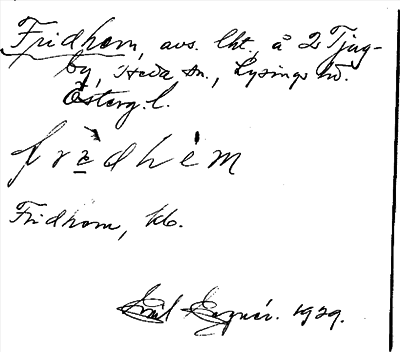 Fridhem, avs. lht., å 2 Tjug-
by, Heda sn., Lysings hd.
Österg. l.
frèdhèm
Fridhem, kb.
1929.